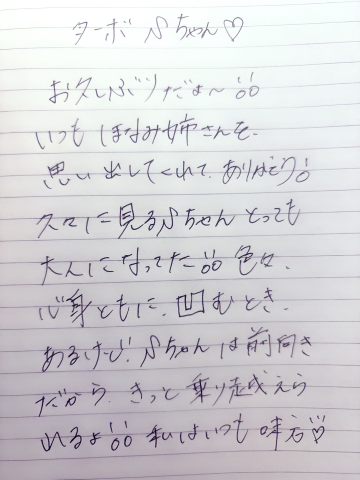 ターボ Sちゃん♡
お久しぶりだょ〜!!
いつも ほなみ姉さんを、
思い出してくれて、ありがとう!
久々に見るSちゃん とっても
大人になってた!! 色々、
心身ともに、凹むとき、
あるけど! Sちゃんは前向き
だから、きっと 乗り越えら
れるよ!! 私はいつも 味方♡